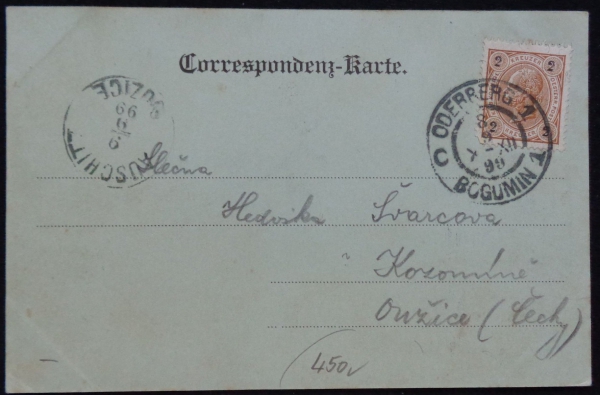 Correspondenz-Karte.
2 KREUZER 2
2 2
ODERBERG 1
8
XII
99
BOGUMIN 1
99
9
Slečna
Hedvika Švarcova
Kozomíně
Oužice (Čechy)
450,